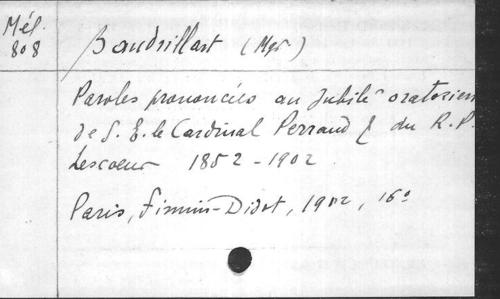 Mél.
808
Baudrillart (Mgr)
Paroles prononcées au jubilé oratorien
de S. E. le Cardinal Perraud & du R. P.
Lescoeur 1852-1902
Paris, Firmin-Didot, 1902, 16º